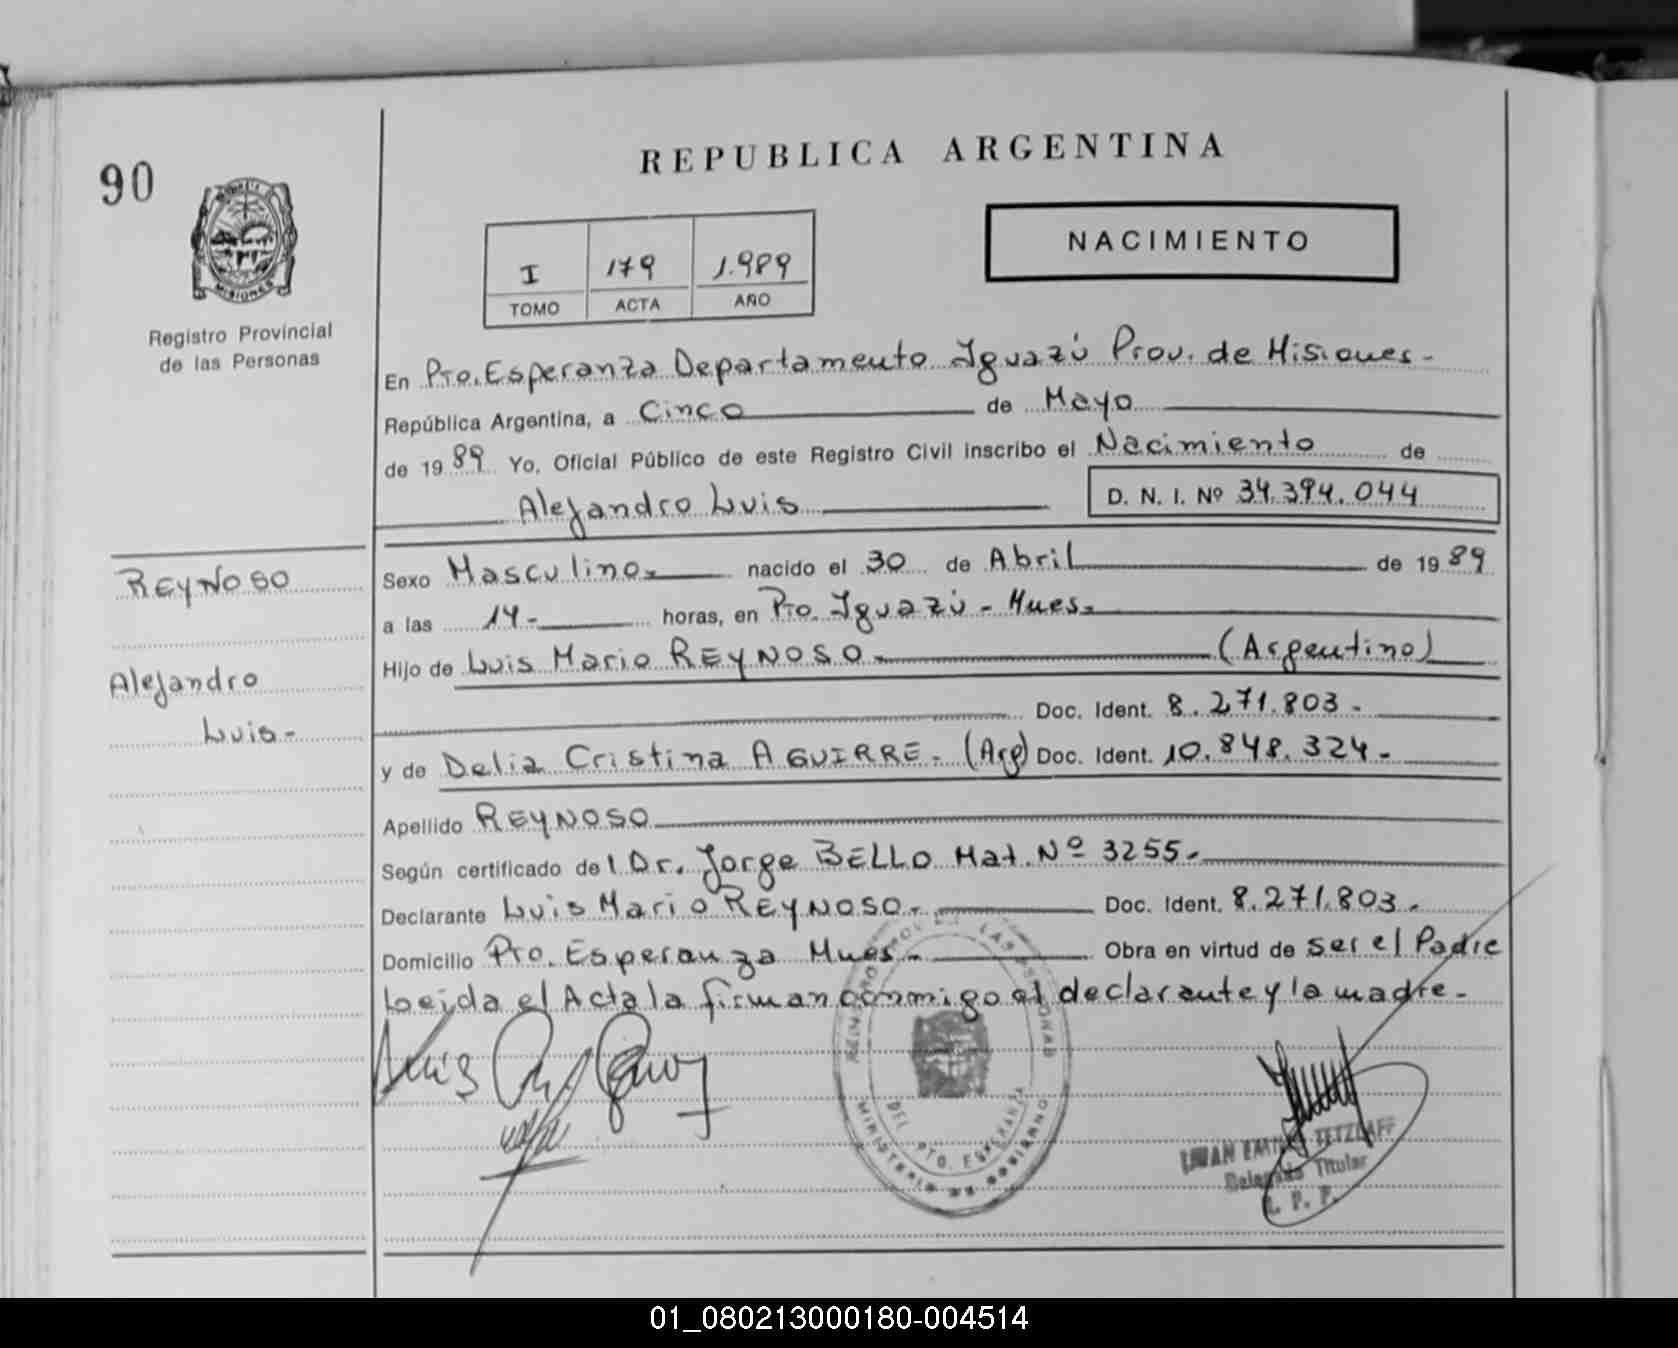 REPUBLICA ARGENTINA
90
MISIONES
Registro Provincial
de las Personas
NACIMIENTO
I 179 1.989
TOMO ACTA AÑO
En Pto. Esperanza Departamento Iguazú Prov. de Misiones-
República Argentina, a Cinco de Mayo
de 1989 Yo, Oficial Público de este Registro Civil inscribo el Nacimiento de
Alejandro Luis D. N. I. Nº 34.394.044
REYNOSO
Alejandro
Luis-
Sexo Masculino- nacido el 30 de Abril de 1989
a las 14- horas, en Pto. Iguazú - Mnes-
Hijo de Luis Mario REYNOSO- (Argentino)
Doc. Ident. 8.271.803-
y de Delia Cristina AGUIRRE- (Arg) Doc. Ident. 10.848.324-
Apellido REYNOSO
Según certificado de l Dr. Jorge BELLO Mat. Nº 3255-
Declarante Luis Mario REYNOSO- Doc. Ident. 8.271.803-
Domicilio Pto. Esperanza Mnes- Obra en virtud de ser el Padre
Leida el Acta la firman conmigo el declarante y la madre-
Luis
DEL PTO. ESPERANZA
MINISTERIO DE GOBIERNO
TETZLAFF
Delegado Titular
R. P. P.
01_080213000180-004514